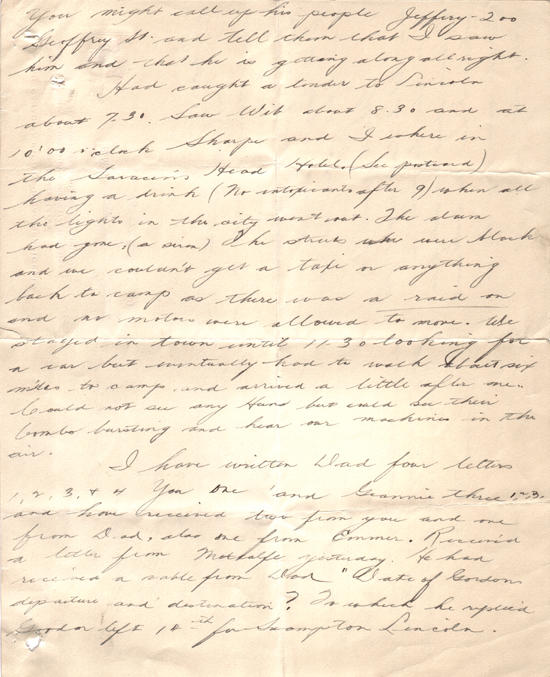 You might call up his people Jeffery - 200
Geoffrey St. and tell them that I saw
him and that he is getting along allright.
Had caught a tender to Lincoln
about 7.30. Saw Wib about 8.30 and at
10'00 o'clock Sharpe and I where in
the Saracen's Head Hotel. (See postcard)
having a drink (No intoxicants after 9) when all
the lights in the city went out. The alarm
had gone. (a siren) The streets were black
and we couldn't get a taxi or anything
back to camp as there was a raid on
and no motors were allowed to move. We
stayed in town until 11.30 looking for
a car but eventually had to walk about six
miles to camp and arrived a little after one.
Could not see any Huns but could see their
bombs bursting and hear our machines in the
air.
I have written Dad four letters
1, 2, 3, & 4 You one and Jeannie three 1-2-3.
and have received two from you and one
from Dad, also one from Emmer. Received
a letter from Metcalfe yesterday. He had
received a cable from Dad "Date of Gordons
departure and destination? To which he replied
Gordon left 14th for Scampton Lincoln.